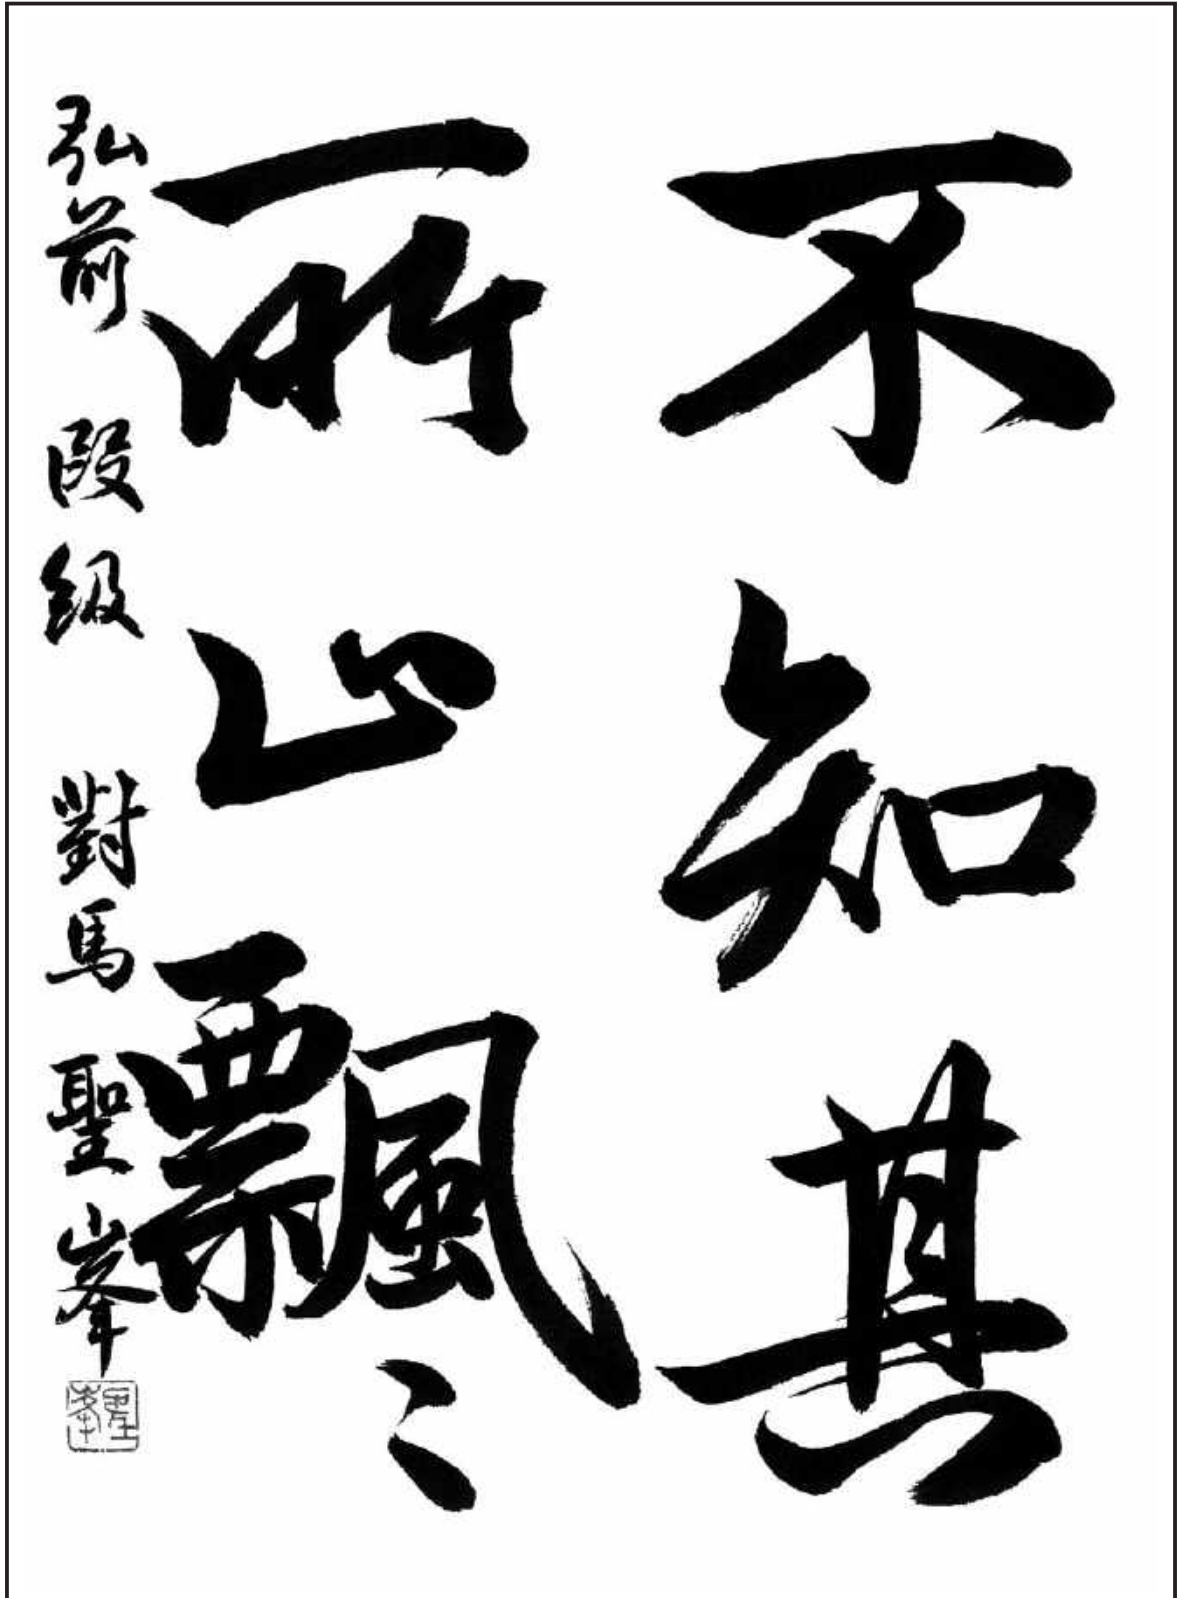 不知其
所止飄〻
弘前 段級 對馬聖峯
聖峯